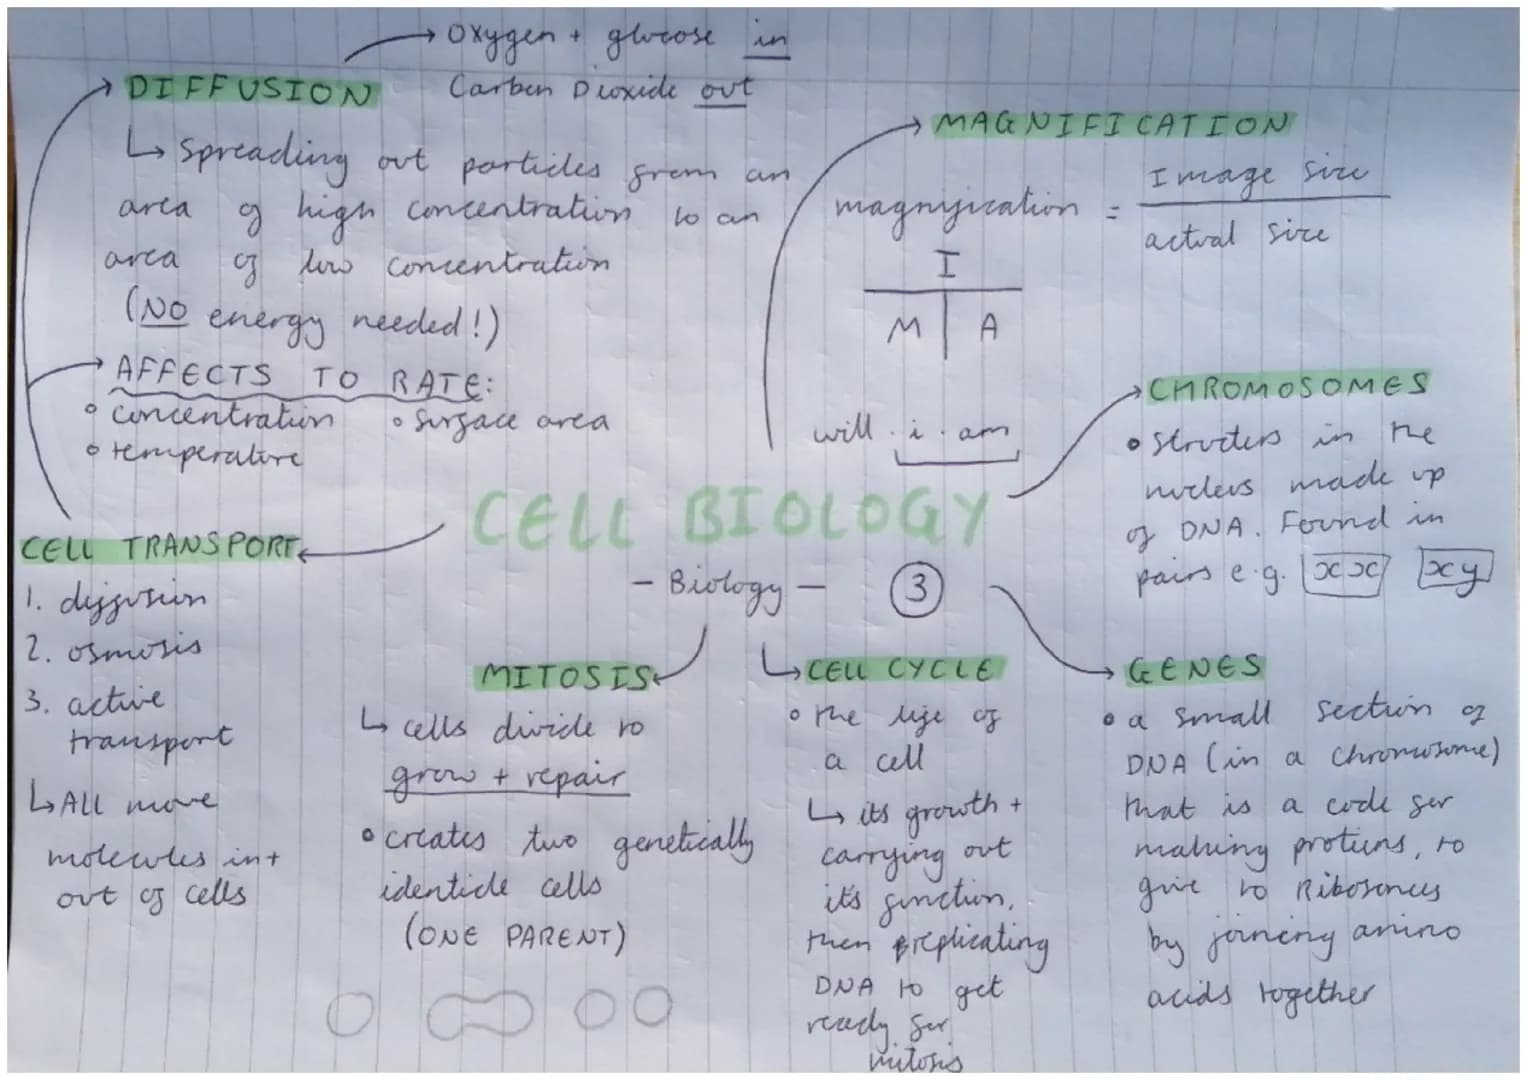 Oxygen + glucose in
Carbon Dioxide out
DIFFUSION
↳ Spreading out particles from an
area of high concentration to an
area of low concentration
(NO energy needed!)
AFFECTS TO RATE:
° concentration ° surface area
° temperature
MAGNIFICATION
magnification = Image size
actual size
I
M A
will.i.am
CELL BIOLOGY
- Biology - 3
CELL TRANSPORT
1. diffusion
2. osmosis
3. active
transport
↳ All move
molecules in +
out of cells
CHROMOSOMES
• structers in the
nucleus made up
of DNA. Found in
pairs e.g. xx xy
MITOSIS
↳ cells divide to
grow + repair
• creates two genetically
identicle cells
(ONE PARENT)
CELL CYCLE
° the life of
a cell
↳ its growth +
carrying out
it's function,
then replicating
DNA to get
ready for
mitosis
GENES
• a small section of
DNA (in a chromosome)
that is a code for
making protiens, to
give to Ribosomes
by joining amino
acids together